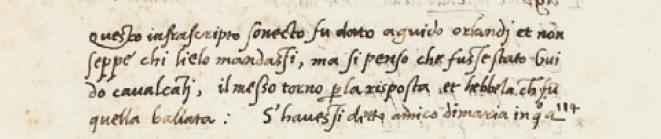 Questo infrascripto sonecto fu dato a guido orlandj et non
seppe chi lielo mandassi, ma si penso che fusse stato Gui
do caualcatj, il messo torno p la risposta et hebbela, ch fu
quella ballata : S'hauessi detto amico di maria in qº a 114